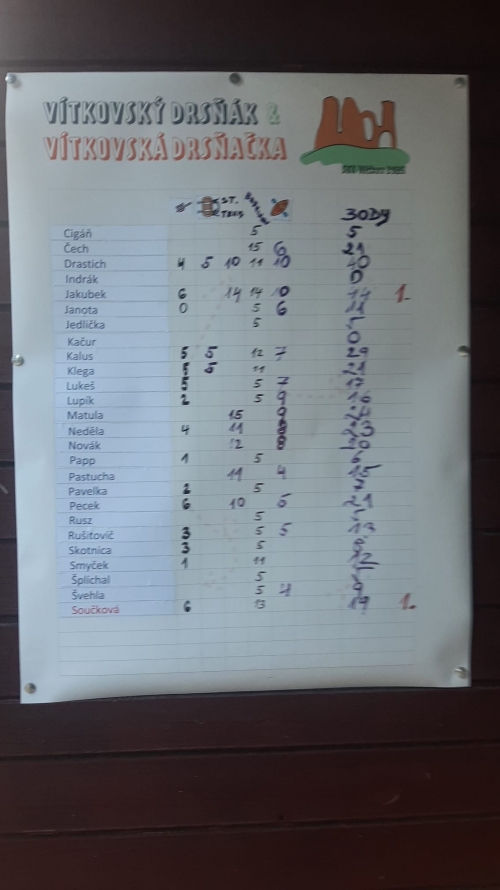 VÍTKOVSKÝ DRSŇÁK &
VÍTKOVSKÁ DRSŇAČKA
ST. BODY
Cigáň 5 5
Čech 15 6 21
Drastich 4 5 10 11 10 40
Indrák 0
Jakubek 6 14 14 10 1.
Janota 0 5 6
Jedlička 5
Kačur 0
Kalus 5 5 12 7 29
Klega 5 5 11 21
Lukeš 5 5 7 17
Lupík 2 5 9 16
Matula 15 9
Neděla 4 11
Novák 12
Papp 1 5 6
Pastucha 11 4 15
Pavelka 2 5 7
Pecek 6 10 5 21
Rusz 5
Rušitovič 3 5 5 13
Skotnica 3 5
Smyček 1 11
Šplíchal 5
Švehla 5 4 9
Součková 6 13 19 1.